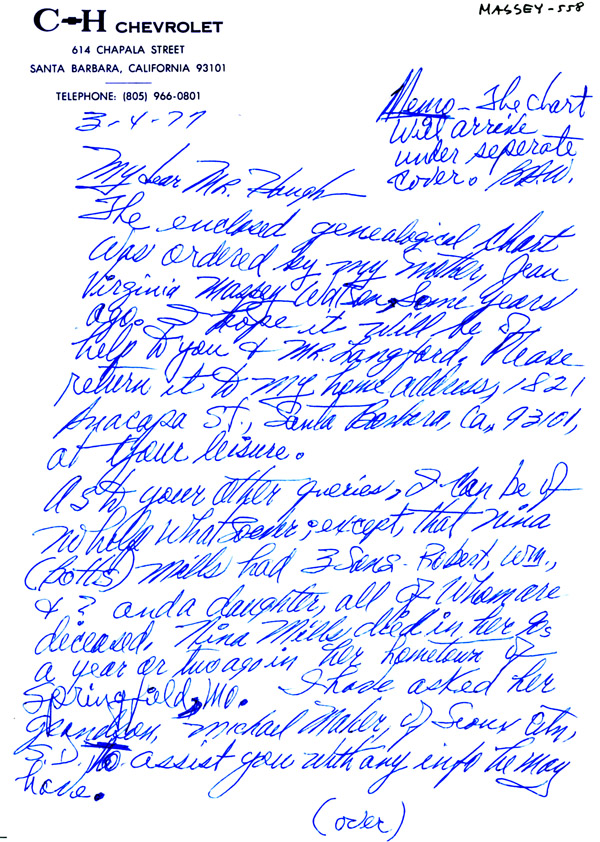 MASSEY-558
C-H CHEVROLET
614 CHAPALA STREET
SANTA BARBARA, CALIFORNIA 93101
TELEPHONE: (805) 966-0801
3-4-77
Memo - The chart
will arrive
under seperate
cover. B.D.W.
My dear Mr. Haugh
The enclosed genealogical chart
was ordered by my mother, Jean
Virginia Massey Watson, some years
ago. I hope it will be of
help to you & Mr. Langford. Please
return it to my home address, 1821
Anacapa St., Santa Barbara, Ca., 93101,
at your leisure.
As to your other queries, I can be of
no help whatsoever; except, that Nina
(Potts) Mills had 3 sons - Robert, Wm.,
& ? and a daughter, all of whom are
deceased. Nina Mills died in her
a year or two ago in her hometown of
Springfield, Mo. I have asked her
grandson, Michael Maher, of Sioux
S.D. to assist you with any info he may
have.
(over)